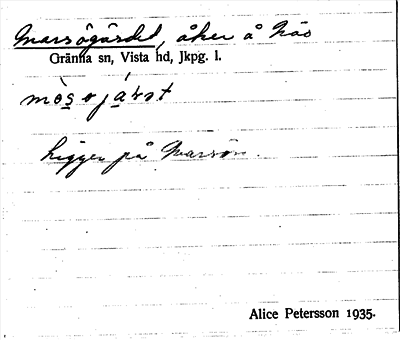 Marsögärdet, åker å Näs
Gränna sn, Vista hd, Jkpg. l.
Ligger på Marsön.
Alice Petersson 1935.